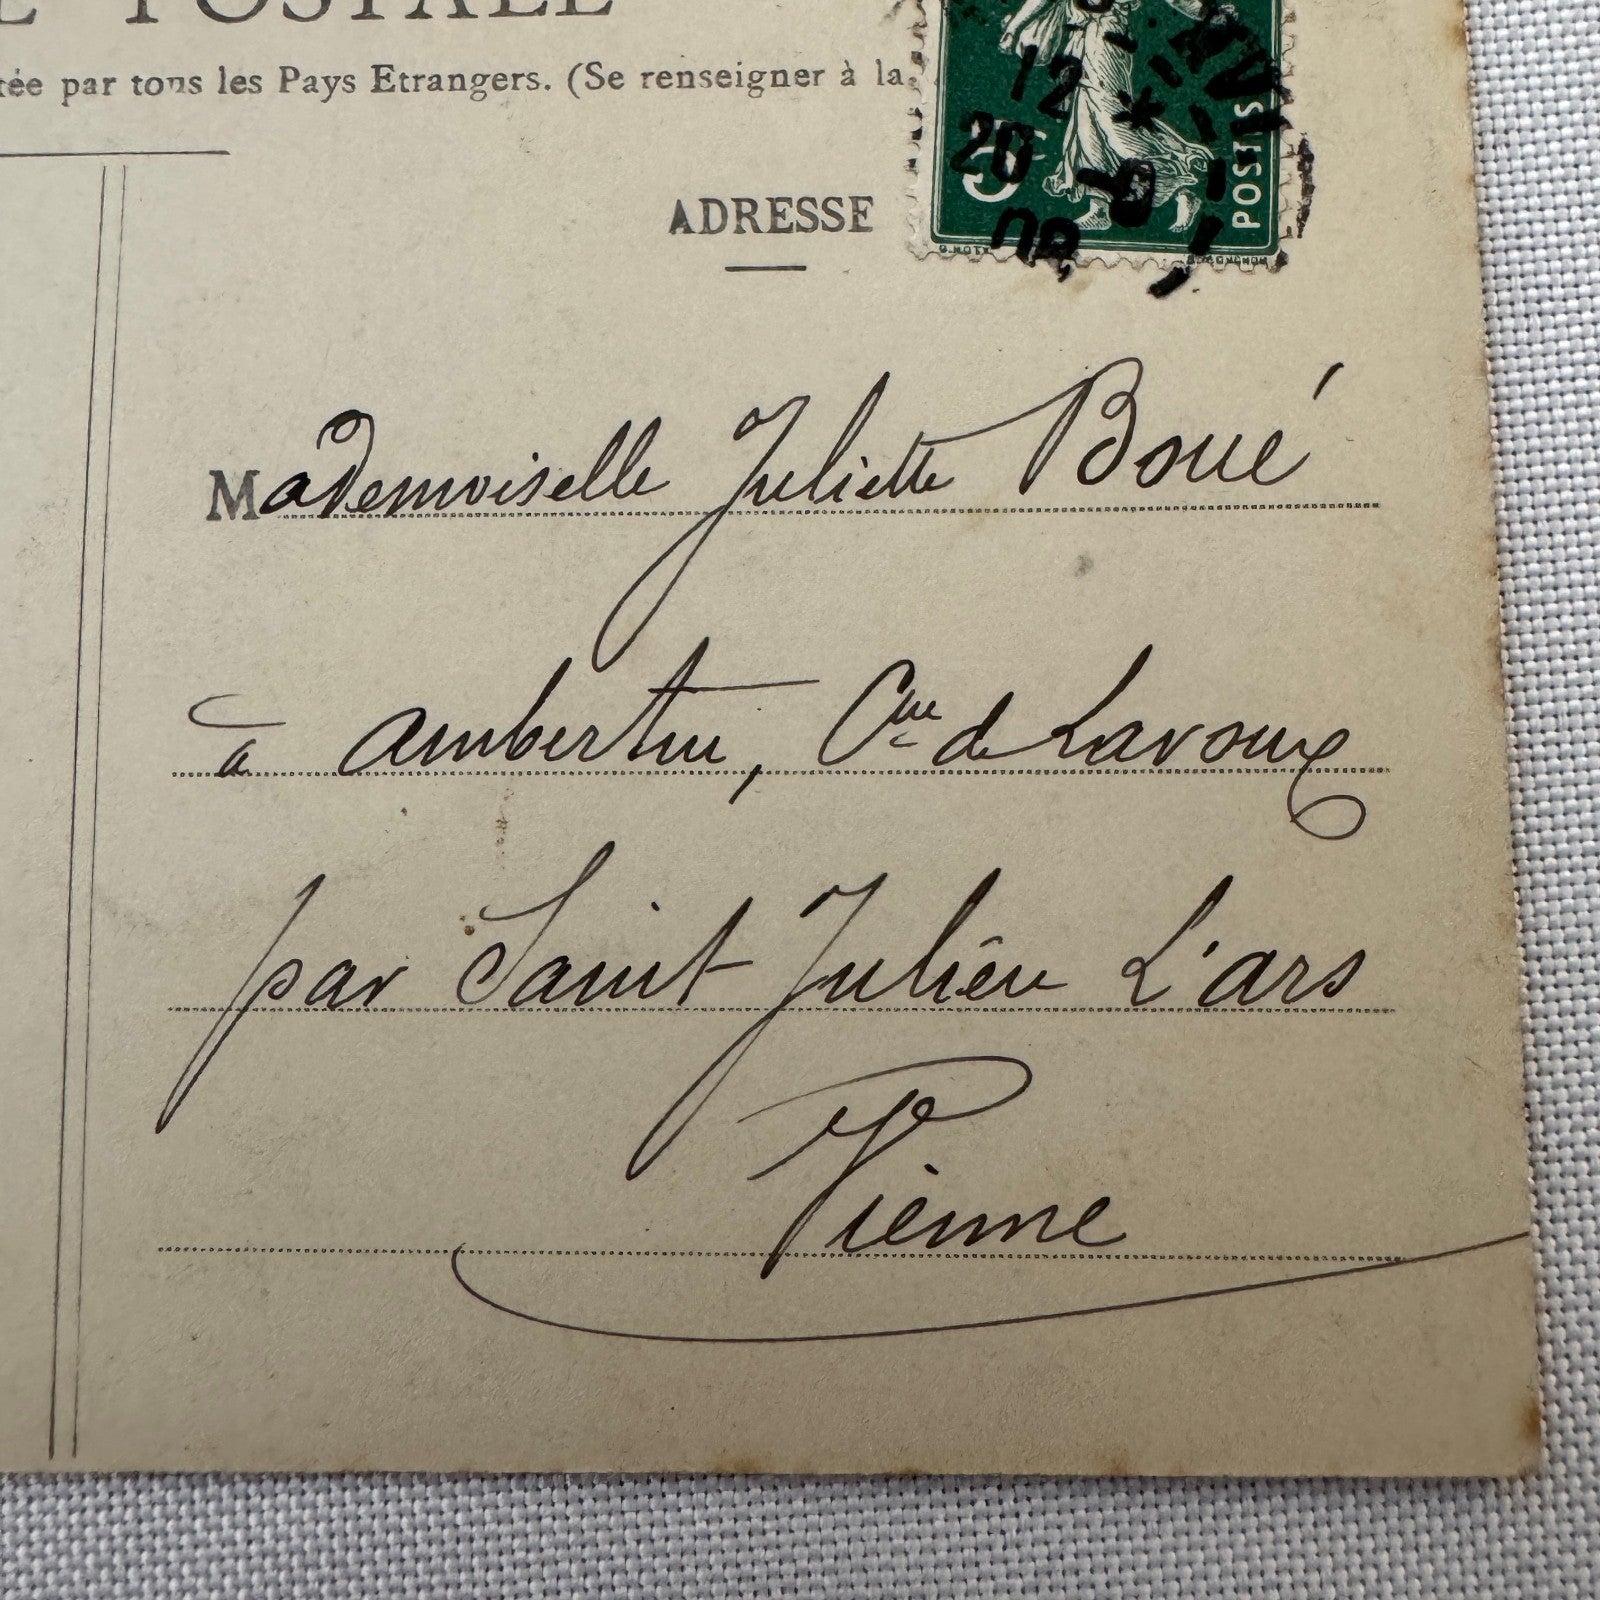 POSTALE
tée par tous les Pays Etrangers. (Se renseigner à la
5c
POSTES
12 *
20 - 9
08
ADRESSE
Mademoiselle Juliette Boué
à Ambertin, Cne de Lavoux
par Saint Julien L'ars
Vienne